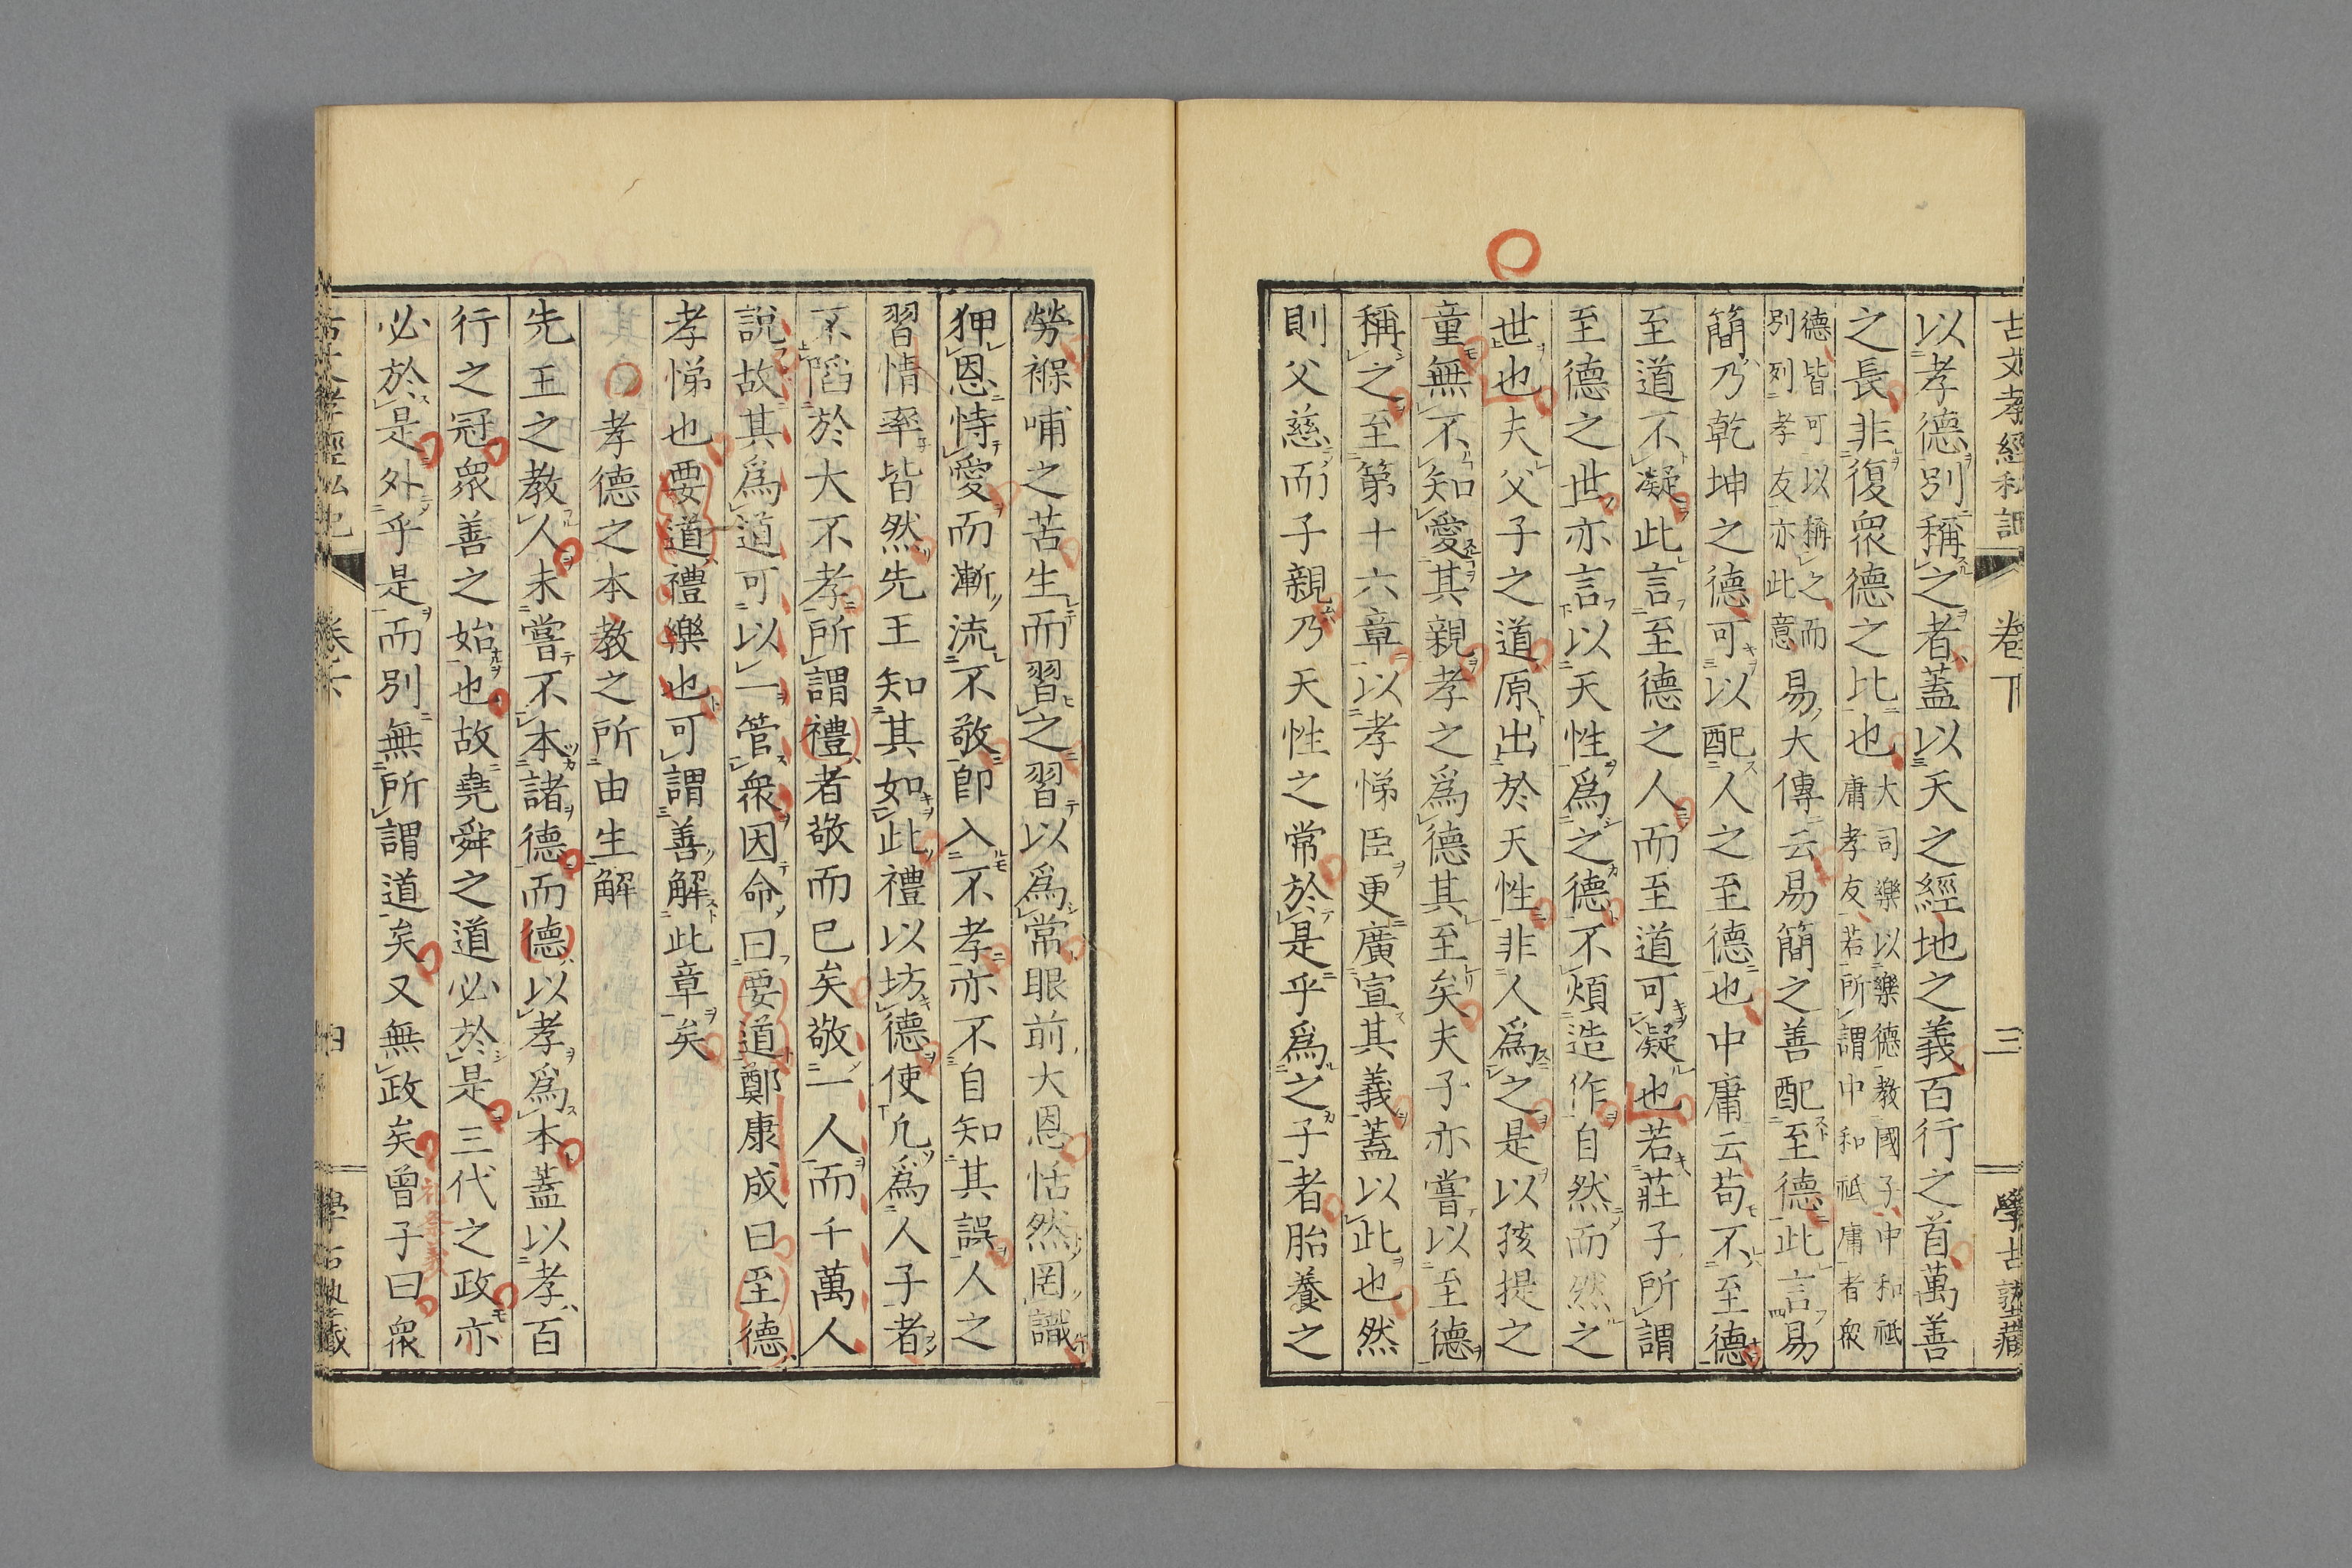 古文孝經私記
卷下
三
學古塾藏
以孝德別稱之者蓋以天之經地之義百行之首萬善
之長非復衆德之比也
大司樂以樂德教國子中和祗
庸孝友若所謂中和祗庸者衆
德皆可以稱之而
別列孝友亦此意
易大傳云易簡之善配至德此言易
簡乃乾坤之德可以配人之至德也中庸云苟不至德
至道不凝此言至德之人而至道可凝也若莊子所謂
至德之世亦言以天性爲之德不煩造作自然而然之
世也夫父子之道原出於天性非人爲之是以孩提之
童無不知愛其親孝之爲德其至矣夫子亦嘗以至德
稱之至第十六章以孝悌臣更廣宣其義蓋以此也然
則父慈而子親乃天性之常於是乎爲之子者胎養之
勞褓哺之苦生而習之習以爲常眼前大恩恬然罔識
狎恩恃愛而漸流不敬卽入不孝亦不自知其誤人之
習情率皆然先王知其如此禮以坊德使凢爲人子者
不陷於大不孝所謂禮者敬而已矣敬一人而千萬人
說故其爲道可以一管衆因命曰要道鄭康成曰至德
孝悌也要道禮樂也可謂善解此章矣
孝德之本教之所由生解
先王之教人未嘗不本諸德而德以孝爲本蓋以孝百
行之冠衆善之始也故堯舜之道必於是三代之政亦
必於是外乎是而別無所謂道矣又無政矣曾子曰衆
礼祭義